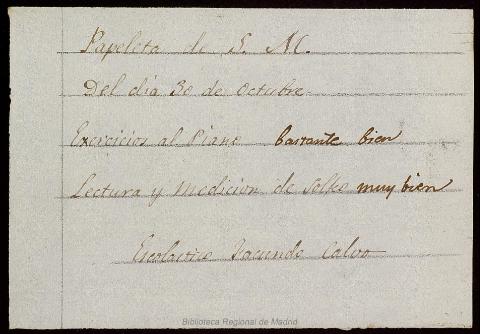 Papeleta de S. M.
Del dia 30 de Octubre
Exercicios al Piano bastante bien
Lectura y Medicion de Solfeo muy bien
Escolastico Facundo Calvo
Biblioteca Regional de Madrid